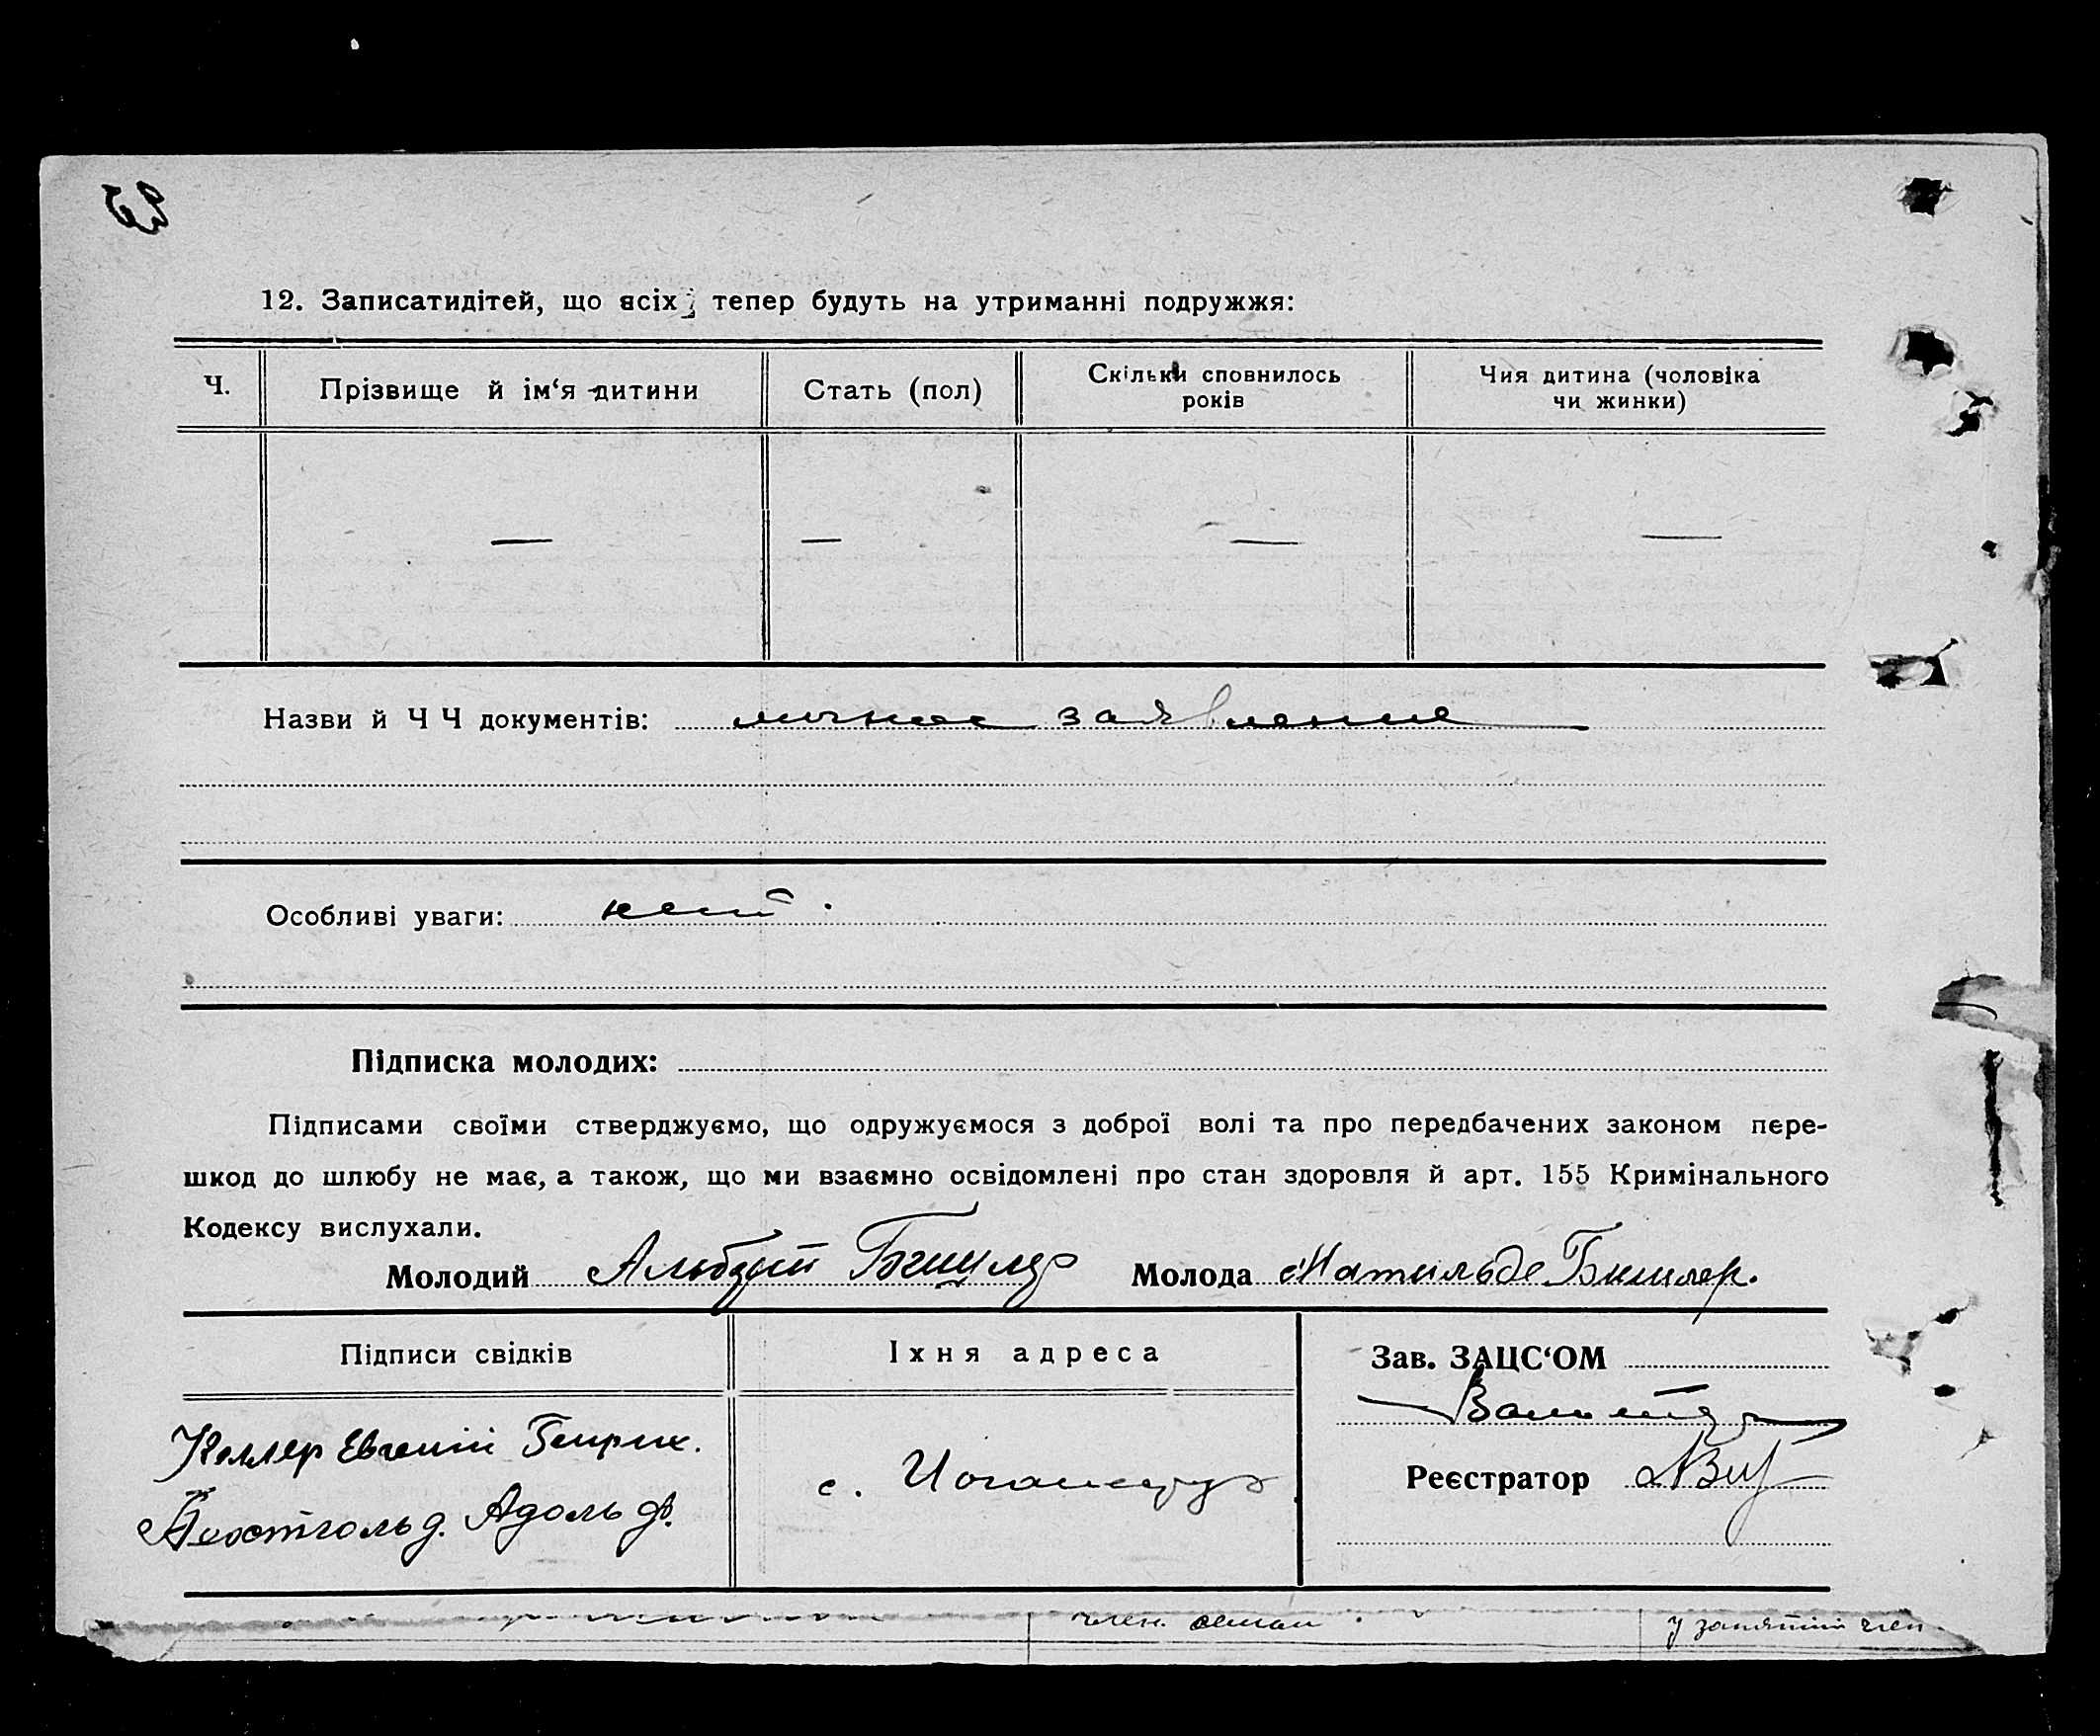 12. Записатидітей, що всіх тепер будуть на утриманні подружжя:
Ч.
Прізвище й ім‘я дитини
Стать (пол)
Скільки сповнилось
років
Чия дитина (чоловіка
чи жинки)
— — — —
Назви й Ч Ч документів: личное заявление
Особливі уваги: нет.
Підписка молодих:
Підписами своїми стверджуємо, що одружуємося з доброї волі та про передбачених законом пере-
шкод до шлюбу не має, а також, що ми взаємно освідомлені про стан здоровля й арт. 155 Кримінального
Кодексу вислухали.
Молодий Альберт Бишлер Молода Матильде Бишлер.
Підписи свідків
Їхня адреса
Зав. ЗАЦС‘ОМ
Келлер Евгений Генрих.
Адольф.
с.
Реєстратор
член. семьи